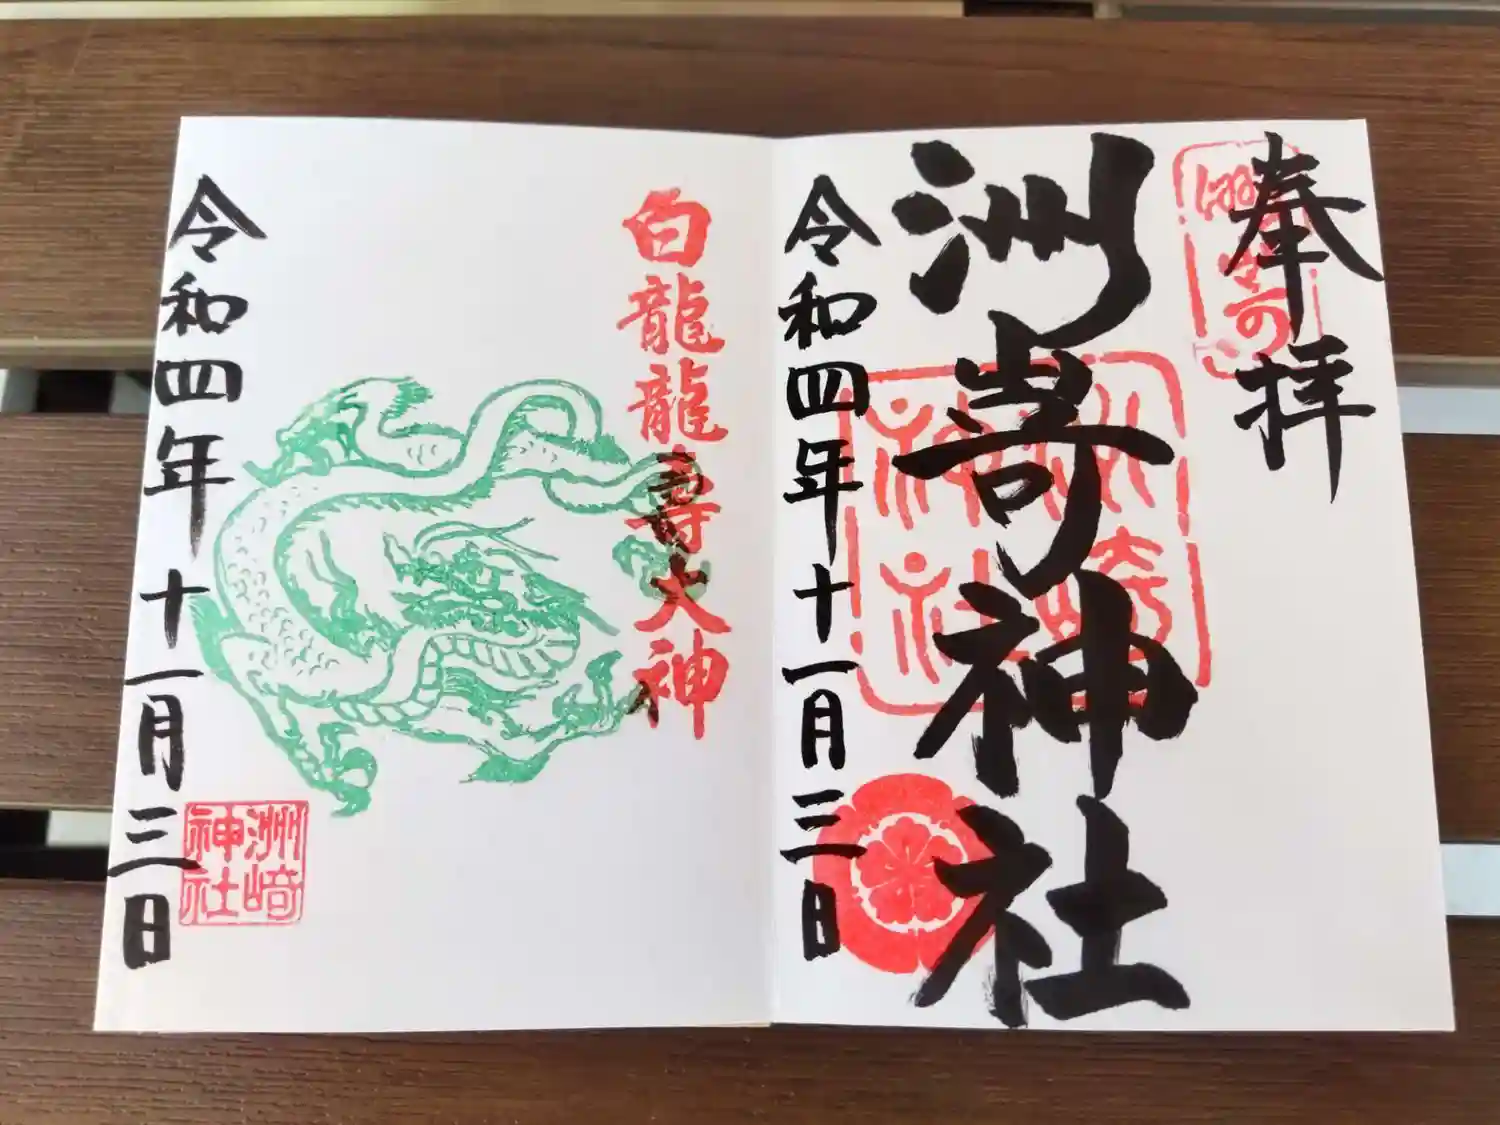 奉拝
洲嵜神社
洲崎
神社
令和四年十一月三日
白龍龍壽大神
洲崎
神社
令和四年十一月三日